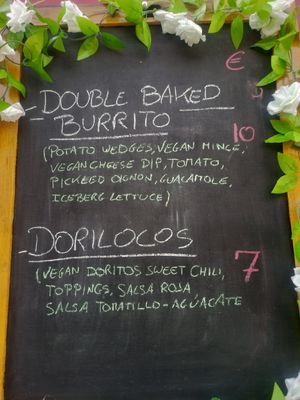 €
- DOUBLE BAKED
BURRITO 10
(POTATO WEDGES, VEGAN MINCE,
VEGAN CHEESE DIP, TOMATO,
PICKEED OIGNON, GUACAMOLE,
ICEBERG LETTUCE)
- DORILOCOS 7
(VEGAN DORITOS SWEET CHILI,
TOPPINGS, SALSA ROJA
SALSA TOMATILLO-AGUACATE